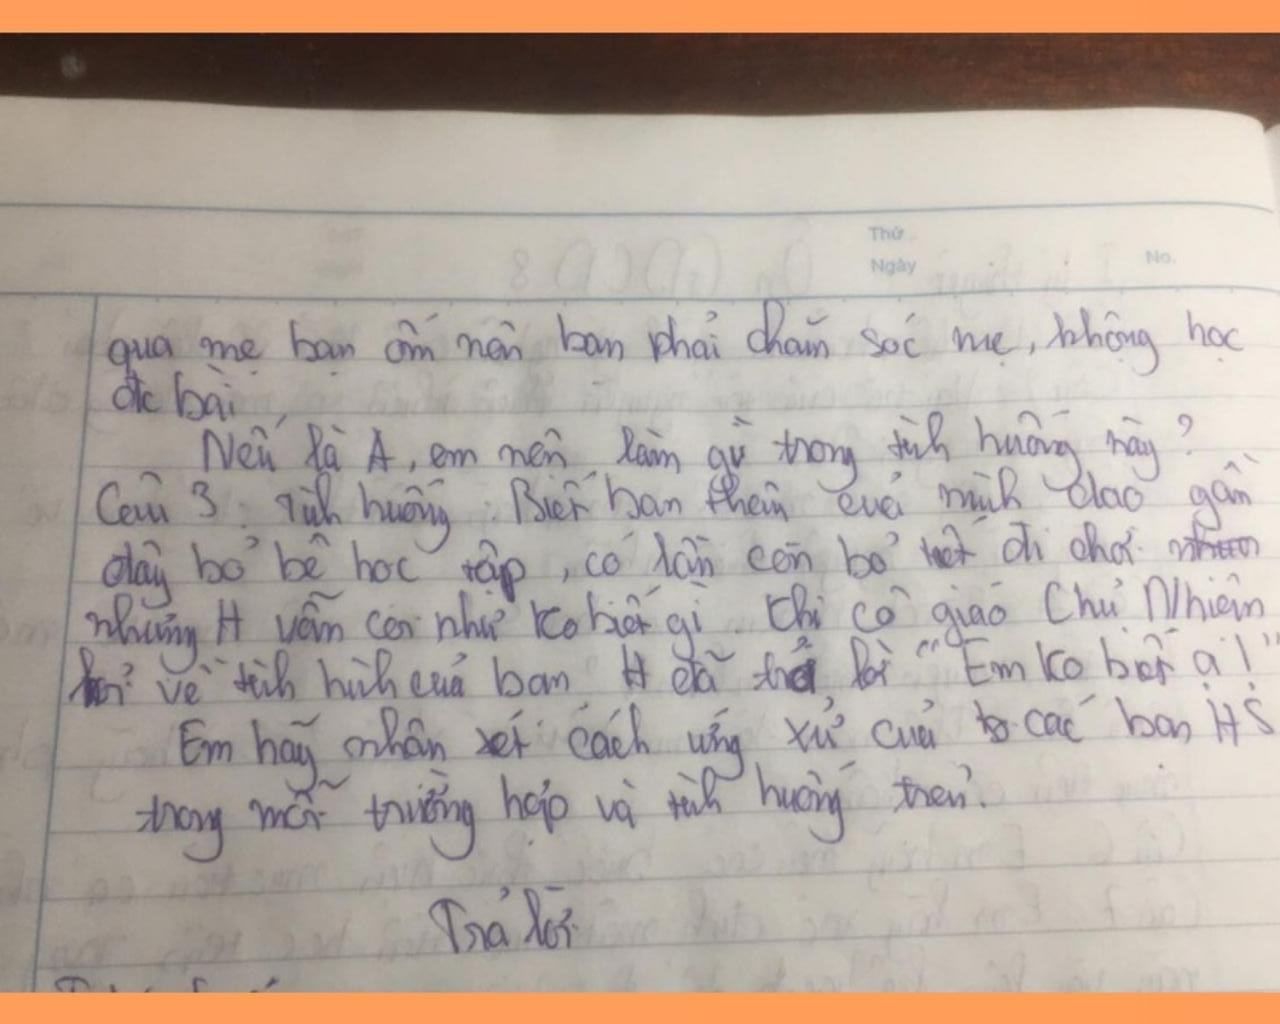 Thứ
Ngày
No.
qua mẹ bạn ốm nên bạn phải chăm sóc mẹ, không học
đc bài.
Nếu là A, em nên làm gì trong tình huống này?
Câu 3: Tình huống: Biết bạn thân của mình dạo gần
đây bỏ bê học tập, có lần còn bỏ tiết đi chơi
nhưng H vẫn coi như ko biết gì. Khi cô giáo Chủ Nhiệm
hỏi về tình hình của bạn H đã trả lời "Em ko biết ạ!"
Em hãy nhận xét cách ứng xử của các bạn HS
trong mỗi trường hợp và tình huống trên?
Trả lời